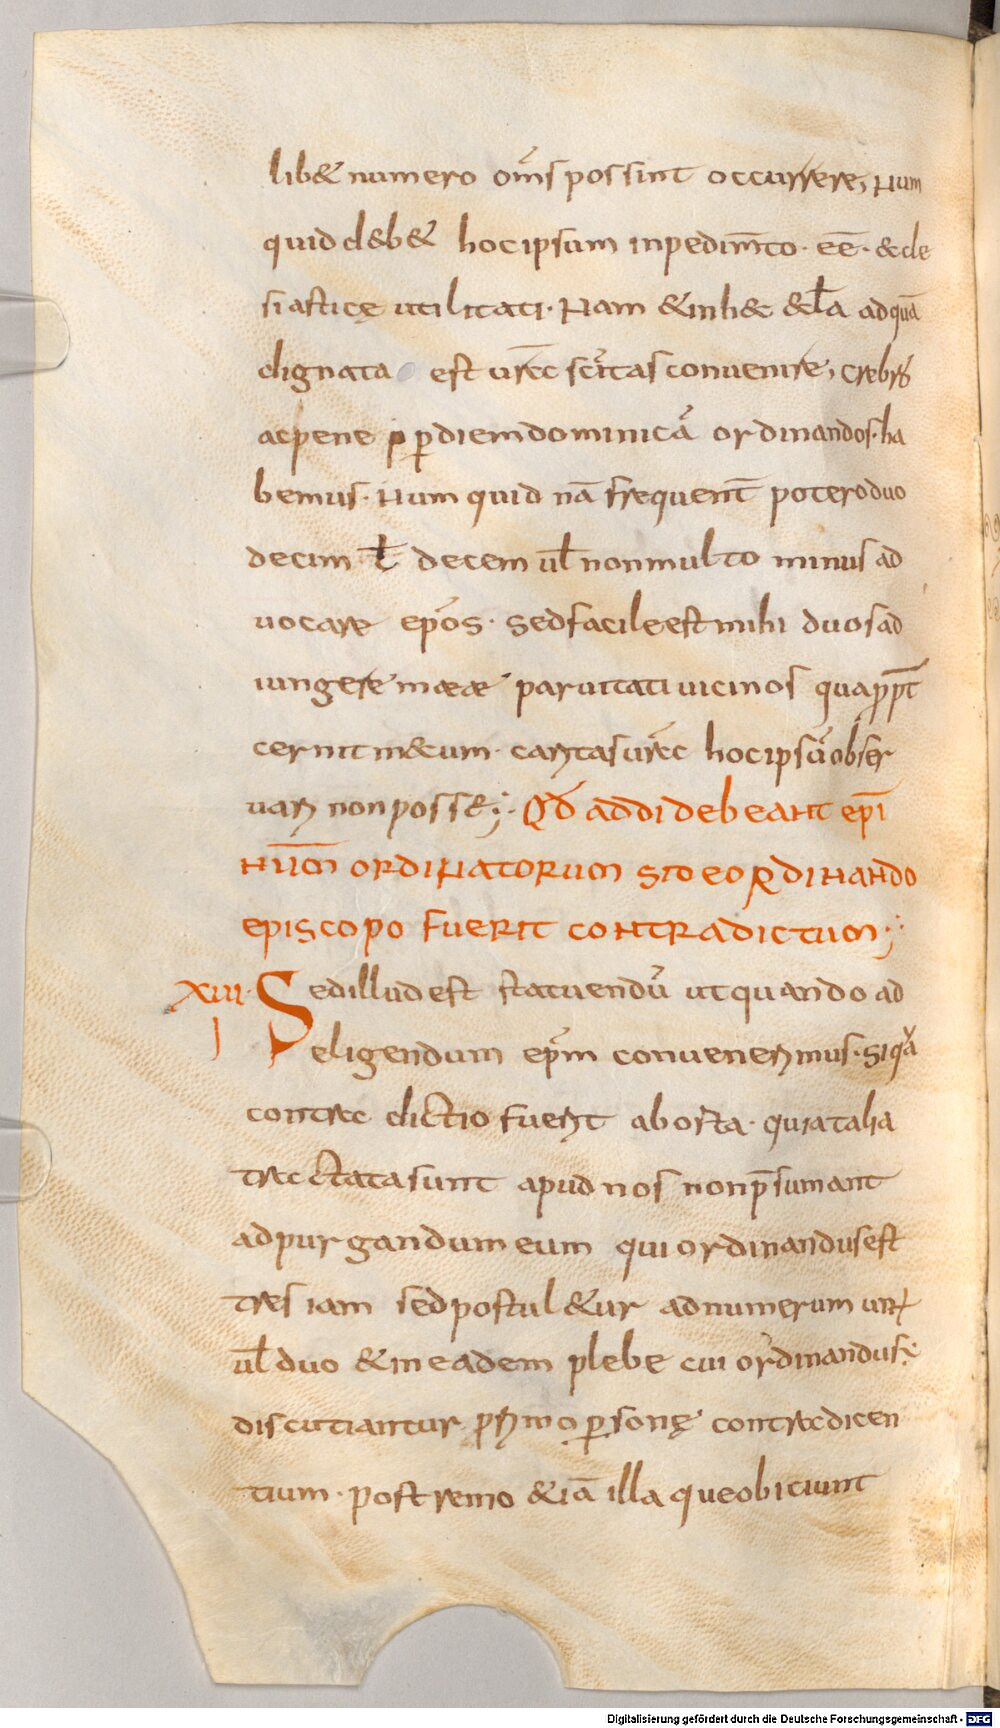 lib& numero om̄s possint occurrere, Num
quid d&b& hoc ipsum inpedim̄to· eē· & cle
siasticę utilitati· Nam & in h& & cl̄a ad quā
dignata est ur̄a sc̄itas conuenire, crebris
ac pene p̲ diem dominicā ordinandos· ha
bemus· Num quid nā frequent̄ potero duo
decim ł decem ul̄ non multo minus ad
uocare ep̄os· Sed facile est mihi duos ad
iungere meae paruitati uicinos quapropt̄
cernit mecum· caritas ur̄a hoc ipsū obser
uari non poss&;· Qd̄ addi debeant epī
nūm ordinatorum si de eo ordinando
episcopo fuerit contradictum;·
XIII· Sed illud est statuendū ut quando ad
eligendum ep̄m conuenerimus· si qua
contra dictio fuerit aborta· quia talia
tractata sunt apud nos non p̄sumant
ad purgandum eum qui ordinandus est
tres iam sed postul&ur ad numerum unꝰ
ul̄ duo & in eadem plebe cui ordinandus;·
discutiantur primo p̲sonę contradicen
tium· postremo &iā illa que obiciunt
Digitalisierung gefördert durch die Deutsche Forschungsgemeinschaft - DFG